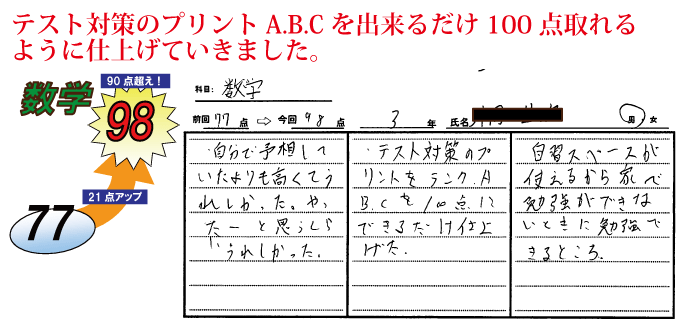 テスト対策のプリント A.B.C を出来るだけ 100 点取れる
ように仕上げていきました。
数学
90 点超え！
98
21 点アップ
77
科目： 数学
前回 77 点 ⇨ 今回 98 点 3 年 氏名 男 女
・自分で予想して
いたよりも高くてう
れしかった。やっ
たーと思うくら
いうれしかった。
・テスト対策のプ
リントをランク.A
B.Cを100点に
できるだけ仕上
げた.
自習スペースが
使えるから家で
勉強ができな
いときに勉強で
きるところ.